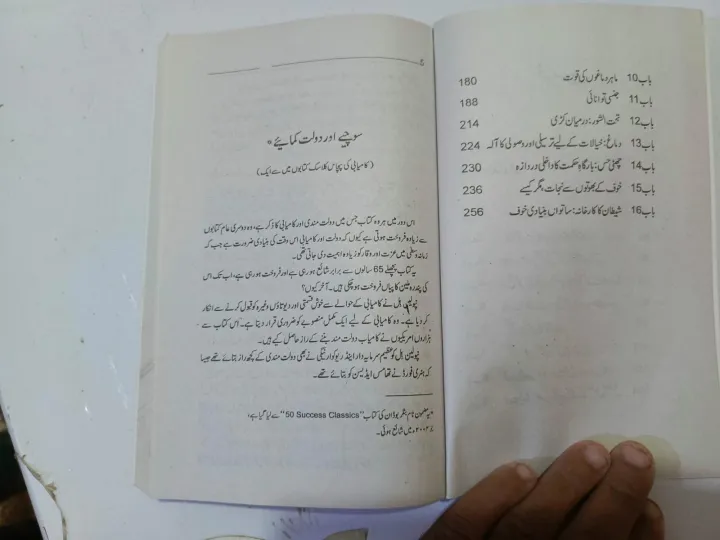 باب 10 ماہر دماغوں کی قوت 180
باب 11 جنسی توانائی 188
باب 12 تحت الشعور: درمیان کڑی 214
باب 13 دماغ: خیالات کے لیے ترسیلی اور وصولی کا آلہ 224
باب 14 چھٹی حس: بارگاہِ حکمت کا داخلی دروازہ 230
باب 15 خوف کے بھوتوں سے نجات، مگر کیسے 236
باب 16 شیطان کا کارخانہ: ساتواں بنیادی خوف 256
سوچیے اور دولت کمائیے *
(کامیابی کی پچاس کلاسک کتابوں میں سے ایک)
اس دور میں ہر وہ کتاب جس میں دولت مندی اور کامیابی کا ذکر ہے، وہ دوسری عام کتابوں
سے زیادہ فروخت ہوتی ہے کیوں کہ دولت اور کامیابی اس وقت کی بنیادی ضرورت ہے جب کہ
زمانہ وسطٰی میں عزت اور وقار کو زیادہ اہمیت دی جاتی تھی۔
یہ کتاب پچھلے 65 سالوں سے برابر شائع ہو رہی ہے اور فروخت ہو رہی ہے، اب تک اس
کی پندرہ ملین کاپیاں فروخت ہو چکی ہیں۔ آخر کیوں؟
نپولین ہل نے کامیابی کے حوالے سے خوش قسمتی اور دیوتاؤں وغیرہ کو قبول کرنے سے انکار
کر دیا ہے۔ وہ کامیابی کے لیے ایک مکمل منصوبے کو ضروری قرار دیتا ہے۔ اس کتاب سے
ہزاروں امریکیوں نے کامیاب دولت مند بننے کے راز حاصل کیے ہیں۔
نپولین ہل کو عظیم سرمایہ دار اینڈریو کارنیگی نے بھی دولت مندی کے کچھ راز بتائے تھے جیسا
کہ ہنری فورڈ نے تھامس ایڈیسن کو بتائے تھے۔
*یہ مضمون ٹام بٹلر بوڈان کی کتاب "50 Success Classics" سے لیا گیا ہے،
جو ۲۰۰۴ء میں شائع ہوئی۔